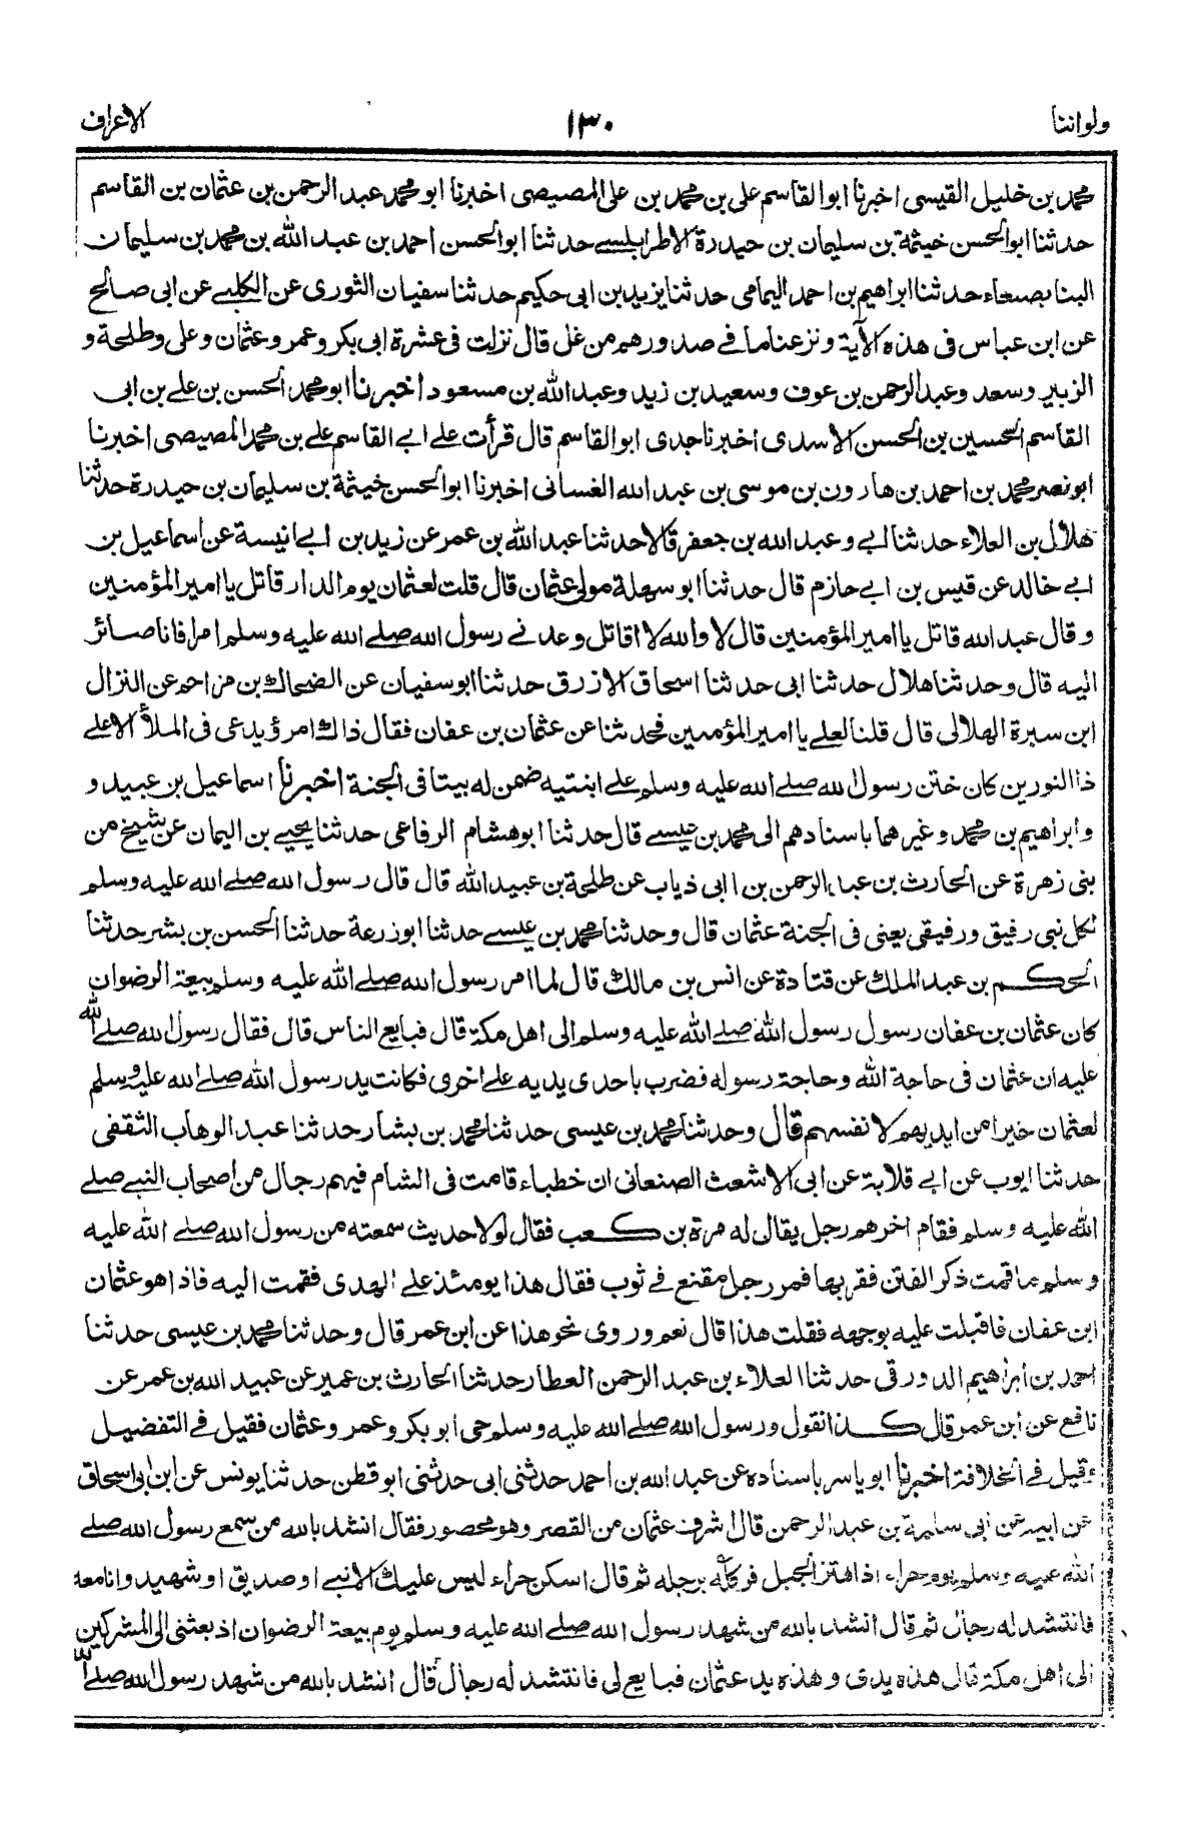 ولواننا
١٣٠
الاعراف
محمد بن خليل القيسى اخبرنا ابوالقاسم على بن محمد بن على المصيصى اخبرنا ابو محمد عبد الرحمن بن عثمان بن القاسم
حدثنا ابوالحسن خيثمة بن سليمان بن حيدرة الاطرابلسے حدثنا ابوالحسن احمد بن عبد الله بن محمد بن سليمان
البنا بصنعاء حدثنا ابراهيم بن احمد اليمامى حدثنا يزيد بن ابى حكيم حدثنا سفيان الثورى عن الكلبے عن ابى صالح
عن ابن عباس فى هذه الآية ونزعنا ما فے صدورهم من غل قال نزلت فى عشرة ابى بكر وعمر وعثمان وعلى وطلحة و
الزبير وسعد وعبد الرحمن بن عوف وسعيد بن زيد وعبد الله بن مسعود اخبرنا ابو محمد الحسن بن علے بن ابى
القاسم الحسين بن الحسن الاسدى اخبرنا جدى ابوالقاسم قال قرأت علے ابے القاسم علے بن محمد المصيصى اخبرنا
ابونصر محمد بن احمد بن هارون بن موسى بن عبد الله الغسانى اخبرنا ابوالحسن خيثمة بن سليمان بن حيدرة حدثنا
هلال بن العلاء حدثنا ابے وعبد الله بن جعفر قالا حدثنا عبد الله بن عمر عن زيد بن ابے انيسة عن اسماعيل بن
ابے خالد عن قيس بن ابے حازم قال حدثنا ابو سهلة مولى عثمان قال قلت لعثمان يوم الدار قاتل يا امير المؤمنين
وقال عبد الله قاتل يا امير المؤمنين قال لا والله لا اقاتل وعدنے رسول الله صلے الله عليه وسلم امرا فانا صائر
اليه قال وحدثنا هلال حدثنا ابى حدثنا اسحاق الازرق حدثنا ابو سفيان عن الضحاك بن مزاحم عن النزال
ابن سبرة الهلالى قال قلنا لعلے يا امير المؤمنين فحدثنا عن عثمان بن عفان فقال ذاك امرؤ يدعى فى الملأ الاعلے
ذا النورين كان ختن رسول الله صلے الله عليه وسلم علے ابنتيه ضمن له بيتا فى الجنة اخبرنا اسماعيل بن عبيد و
وابراهيم بن محمد وغيرهما باسنادهم الى محمد بن عيسے قال حدثنا ابوهشام الرفاعى حدثنا يحيے بن اليمان عن شيخ من
بنى زهرة عن الحارث بن عبد الرحمن بن ابى ذياب عن طلحة بن عبيد الله قال قال رسول الله صلے الله عليه وسلم
لكل نبى رفيق ورفيقى يعنى فى الجنة عثمان قال وحدثنا محمد بن عيسے حدثنا ابوزرعة حدثنا الحسن بن بشر حدثنا
الحكم بن عبد الملك عن قتادة عن انس بن مالك قال لما امر رسول الله صلے الله عليه وسلم ببيعة الرضوان
كان عثمان بن عفان رسول رسول الله صلے الله عليه وسلم الى اهل مكة قال فبايع الناس قال فقال رسول الله صلے الله
عليه ان عثمان فى حاجة الله وحاجة رسوله فضرب باحدى يديه علے اخرى فكانت يد رسول الله صلے الله عليه وسلم
لعثمان خيرا من ايديهم لانفسهم قال وحدثنا محمد بن عيسى حدثنا محمد بن بشار حدثنا عبد الوهاب الثقفى
حدثنا ايوب عن ابے قلابة عن ابى الاشعث الصنعانى ان خطباء قامت فى الشام فيهم رجال من اصحاب النبے صلے
الله عليه وسلم فقام اخرهم رجل يقال له مرة بن كعب فقال لولا حديث سمعته من رسول الله صلے الله عليه
وسلم ما قمت ذكر الفتن فقربها فمر رجل مقنع فے ثوب فقال هذا يومئذ علے الهدى فقمت اليه فاذا هو عثمان
ابن عفان فاقبلت عليه بوجهه فقلت هذا قال نعم وروى نحو هذا عن ابن عمر قال وحدثنا محمد بن عيسى حدثنا
احمد بن ابراهيم الدورقى حدثنا العلاء بن عبد الرحمن العطار حدثنا الحارث بن عمير عن عبيد الله بن عمر عن
نافع عن ابن عمر قال كذا نقول ورسول الله صلے الله عليه وسلم حى ابو بكر وعمر وعثمان فقيل فے التفضيل
وقيل فے الخلافة اخبرنا ابو ياسر باسناده عن عبد الله بن احمد حدثنى ابى حدثنى ابو قطن حدثنا يونس عن ابن ابى اسحاق
عن ابيه عن ابى سلمة بن عبد الرحمن قال اشرف عثمان من القصر وهو محصور فقال انشد بالله من سمع رسول الله صلے
الله عليه وسلم يوم حراء اذا هتز الجبل فركله برجله ثم قال اسكن حراء ليس عليك الا نبے او صديق او شهيد وانا معه
فانتشد له رجال ثم قال انشد بالله من شهد رسول الله صلے الله عليه وسلم يوم بيعة الرضوان اذ بعثنى الى المشركين
الى اهل مكة قال هذه يدى وهذه يد عثمان فبايع لى فانتشد له رجال قال انشد بالله من شهد رسول الله صلے الله